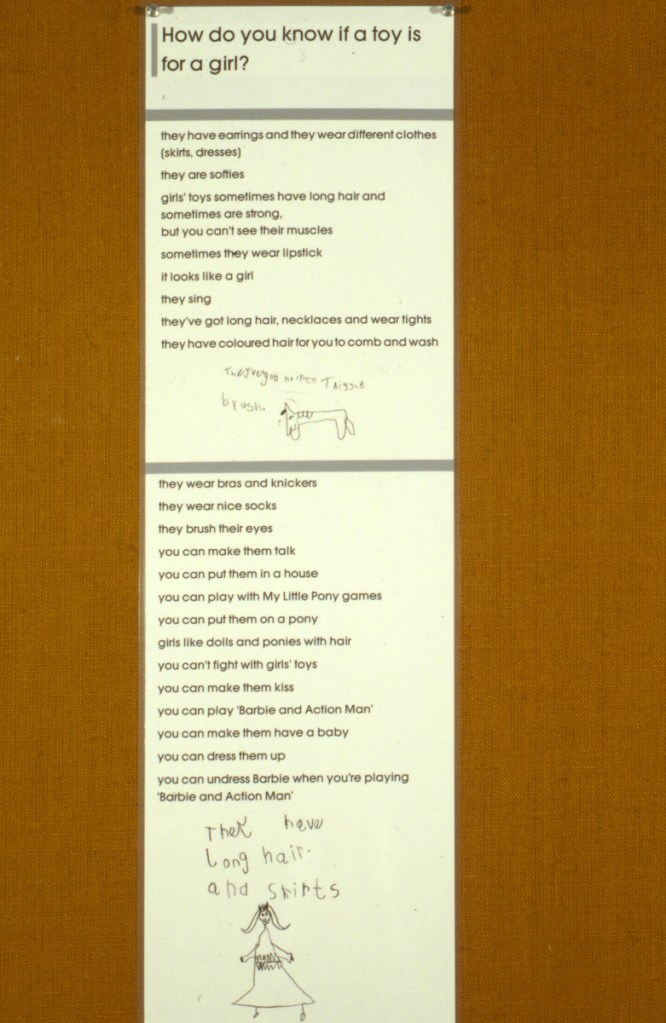 How do you know if a toy is
for a girl?
they have earrings and they wear different clothes
(skirts, dresses)
they are softies
girls' toys sometimes have long hair and
sometimes are strong,
but you can't see their muscles
sometimes they wear lipstick
it looks like a girl
they sing
they've got long hair, necklaces and wear tights
they have coloured hair for you to comb and wash
brush.
they wear bras and knickers
they wear nice socks
they brush their eyes
you can make them talk
you can put them in a house
you can play with My Little Pony games
you can put them on a pony
girls like dolls and ponies with hair
you can't fight with girls' toys
you can make them kiss
you can play 'Barbie and Action Man'
you can make them have a baby
you can dress them up
you can undress Barbie when you're playing
'Barbie and Action Man'
They have
long hair.
and skirts